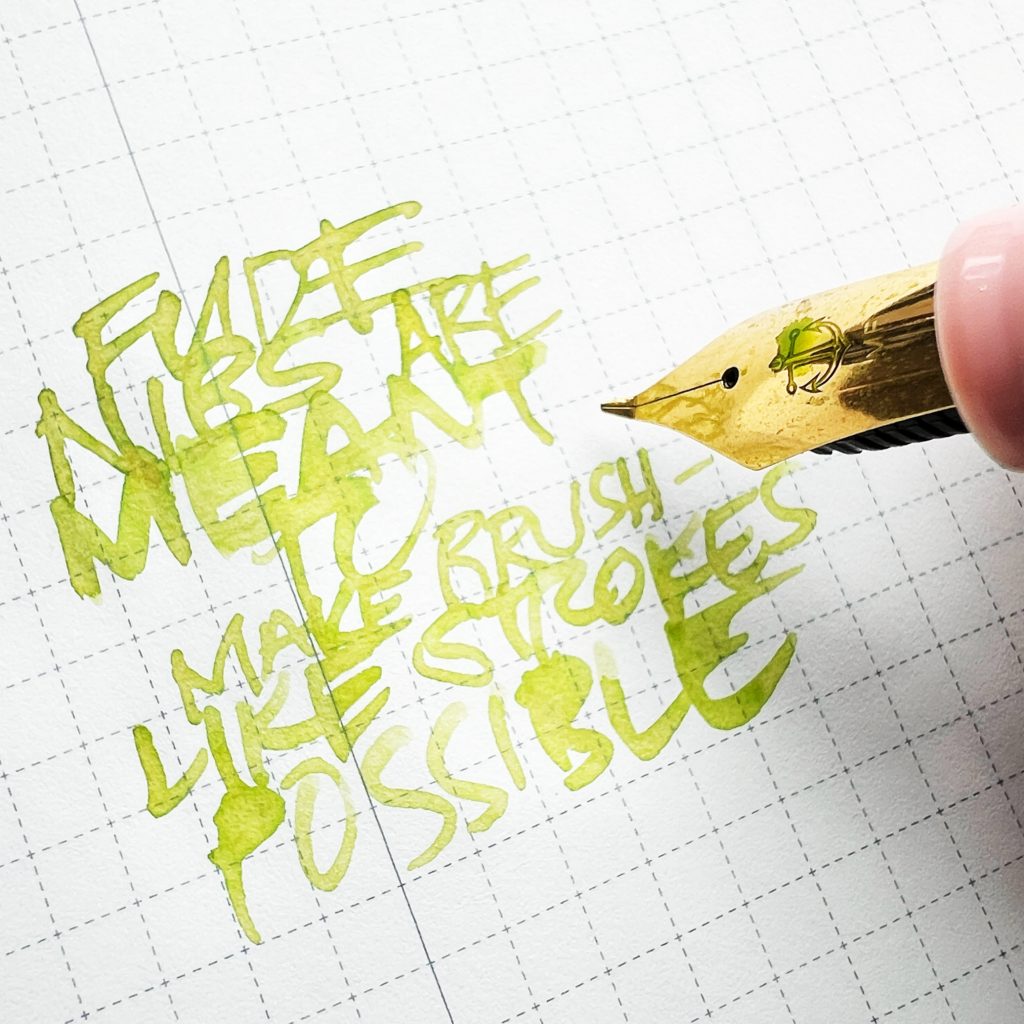 FUDE
NIBS ARE
MEANT
TO
MAKE BRUSH-
LIKE STROKES
POSSIBLE